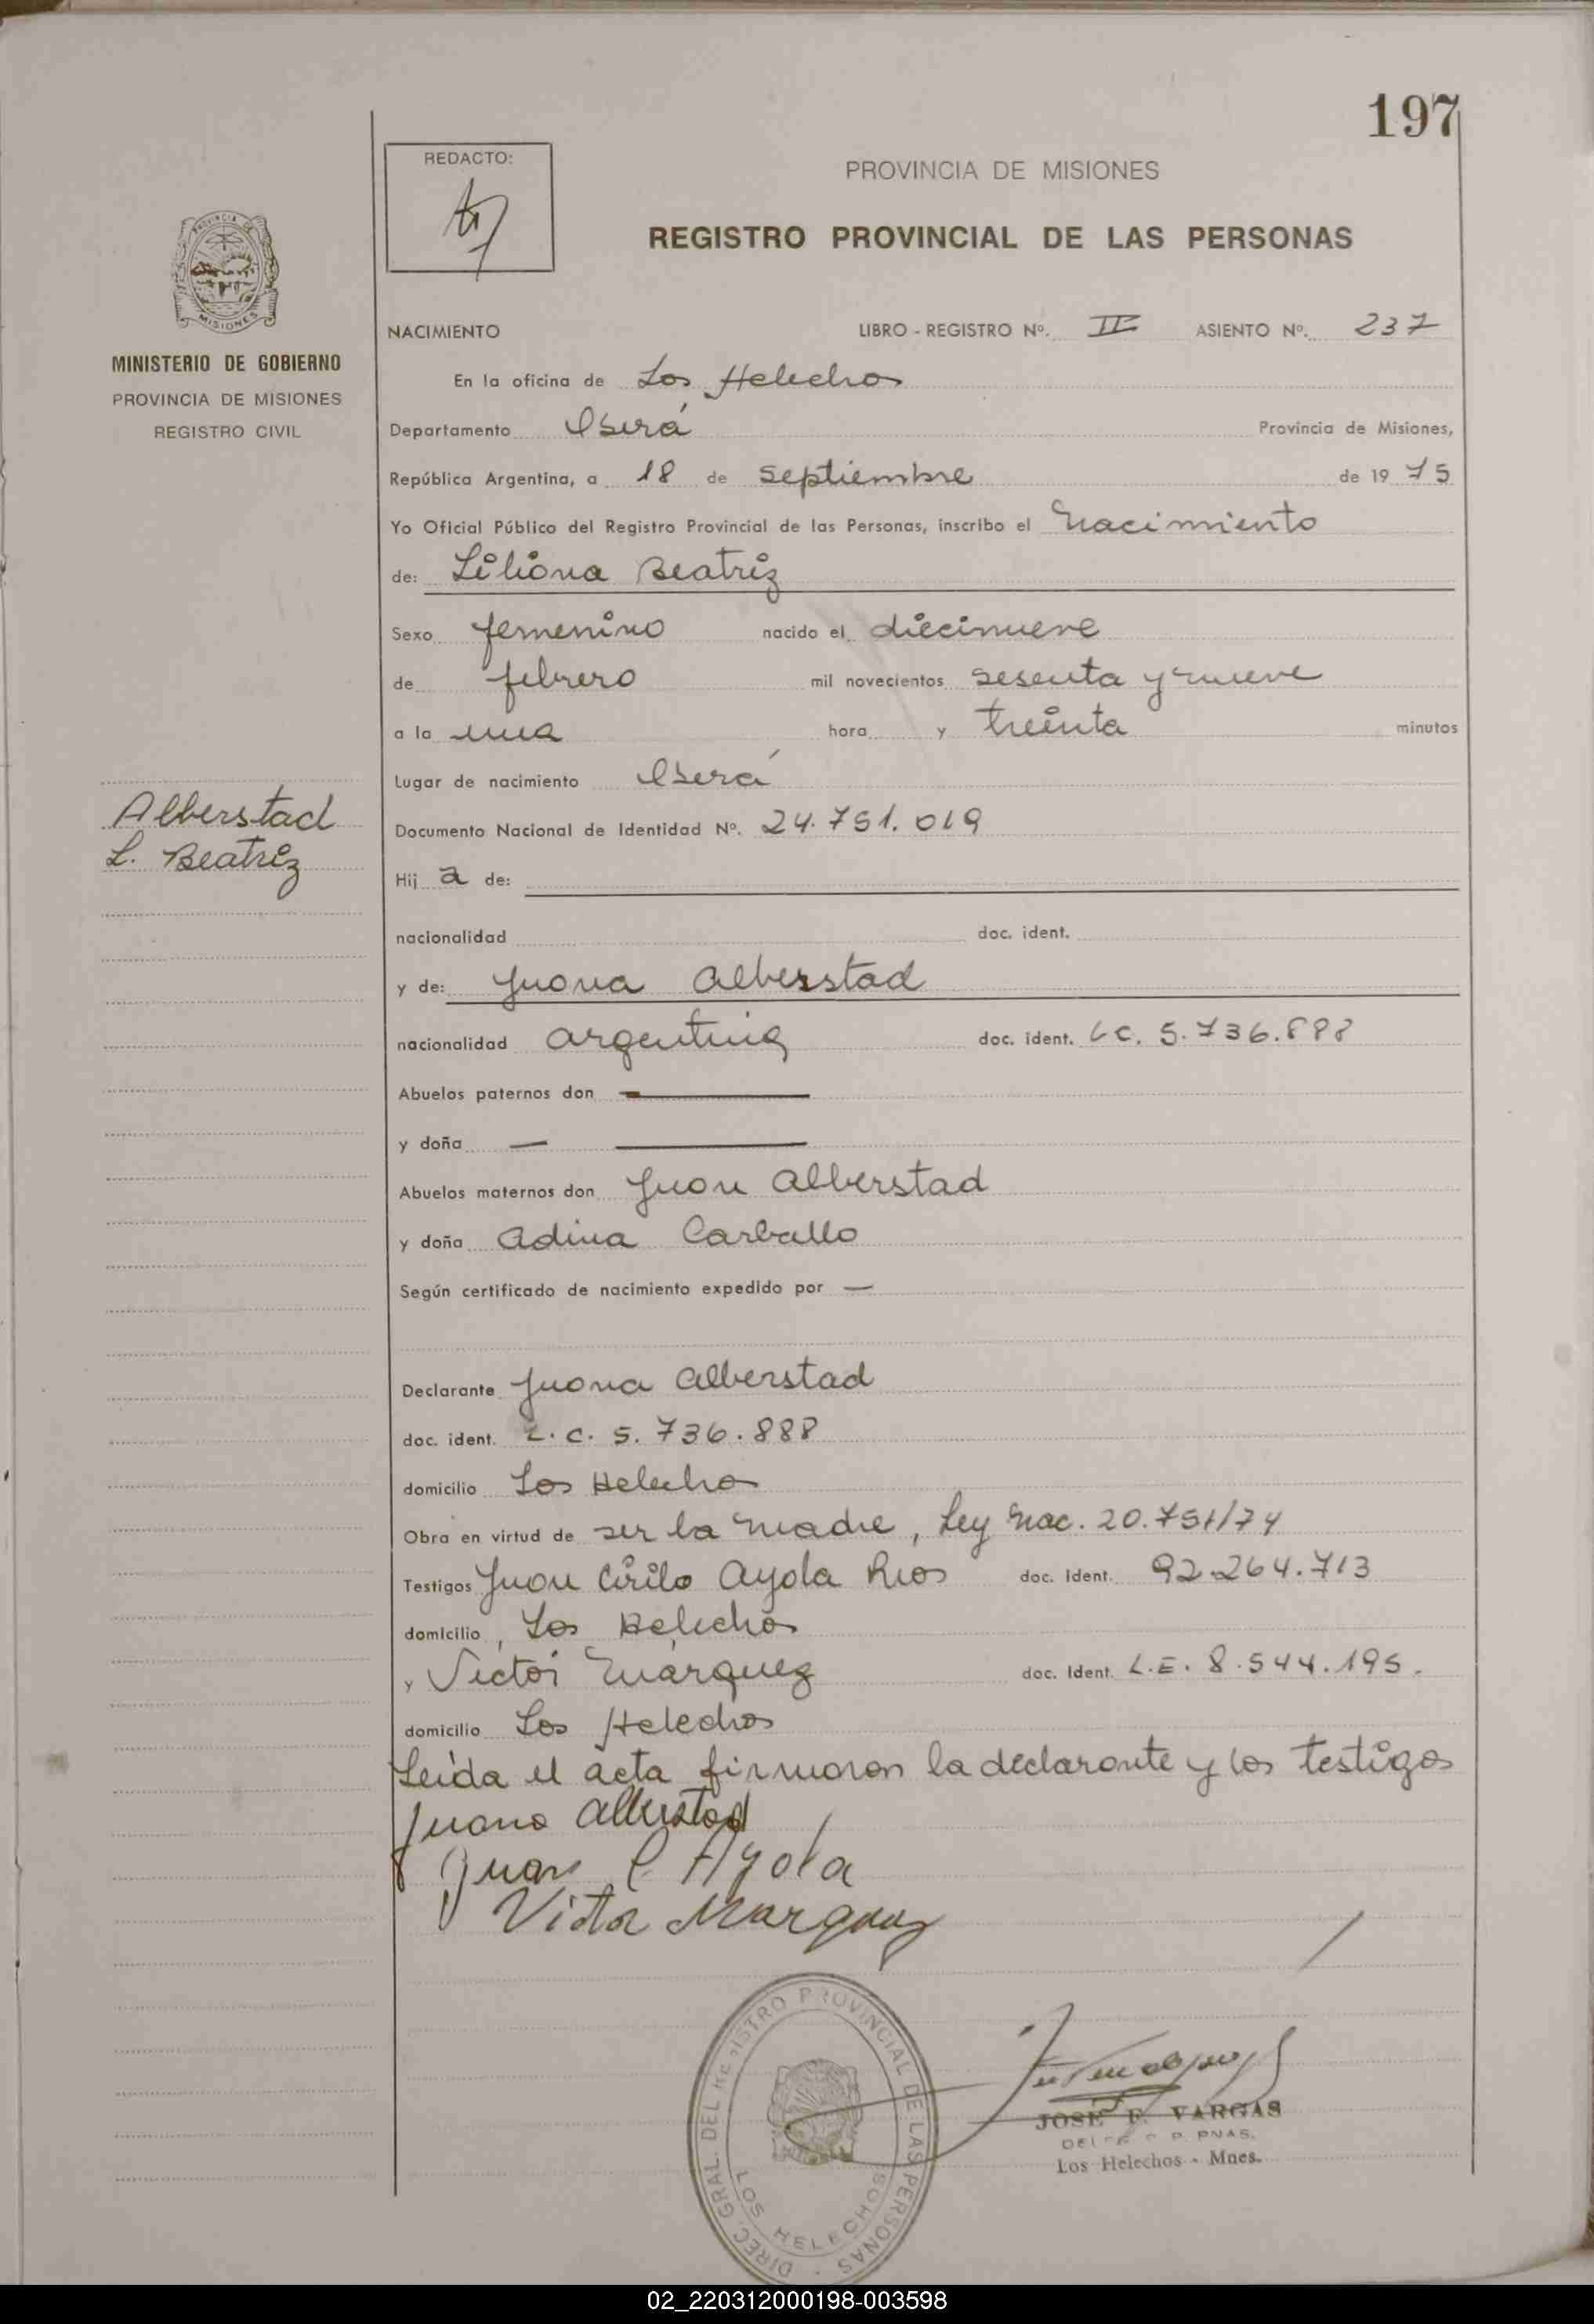 197
REDACTO:
PROVINCIA DE MISIONES
REGISTRO PROVINCIAL DE LAS PERSONAS
PROVINCIA DE
MISIONES
MINISTERIO DE GOBIERNO
PROVINCIA DE MISIONES
REGISTRO CIVIL
NACIMIENTO LIBRO - REGISTRO Nº. II ASIENTO Nº. 237
En la oficina de Los Helechos
Departamento Oberá Provincia de Misiones,
República Argentina, a 18 de septiembre de 19 75
Yo Oficial Público del Registro Provincial de las Personas, inscribo el Nacimiento
de: Liliana Beatriz
Sexo femenino nacido el diecinueve
de febrero mil novecientos sesenta y nueve
a la una hora y treinta minutos
Lugar de nacimiento Oberá
Alberstad
L. Beatriz
Documento Nacional de Identidad Nº. 24.751.019
Hij a de:
nacionalidad doc. ident.
y de: Juana Alberstad
nacionalidad argentina doc. ident. LC. 5.736.888
Abuelos paternos don —
y doña —
Abuelos maternos don Juan Alberstad
y doña Adina Carballo
Según certificado de nacimiento expedido por —
Declarante Juana Alberstad
doc. ident. L.C. 5.736.888
domicilio Los Helechos
Obra en virtud de ser la madre, Ley Nac. 20.751/74
Testigos Juan Cirilo Ayala Rios doc. Ident. 92.264.713
domicilio, Los Helechos
y Victor Márquez doc. Ident. L.E. 8.544.195.
domicilio Los Helechos
Leída el acta firmaron la declarante y los testigos
Juana Alberstad
Juan C Ayala
Victor Marquez
DIREC. GRAL. DEL REGISTRO PROVINCIAL DE LAS PERSONAS
LOS HELECHOS
JOSE F. VARGAS
Los Helechos - Mnes.
02_220312000198-003598